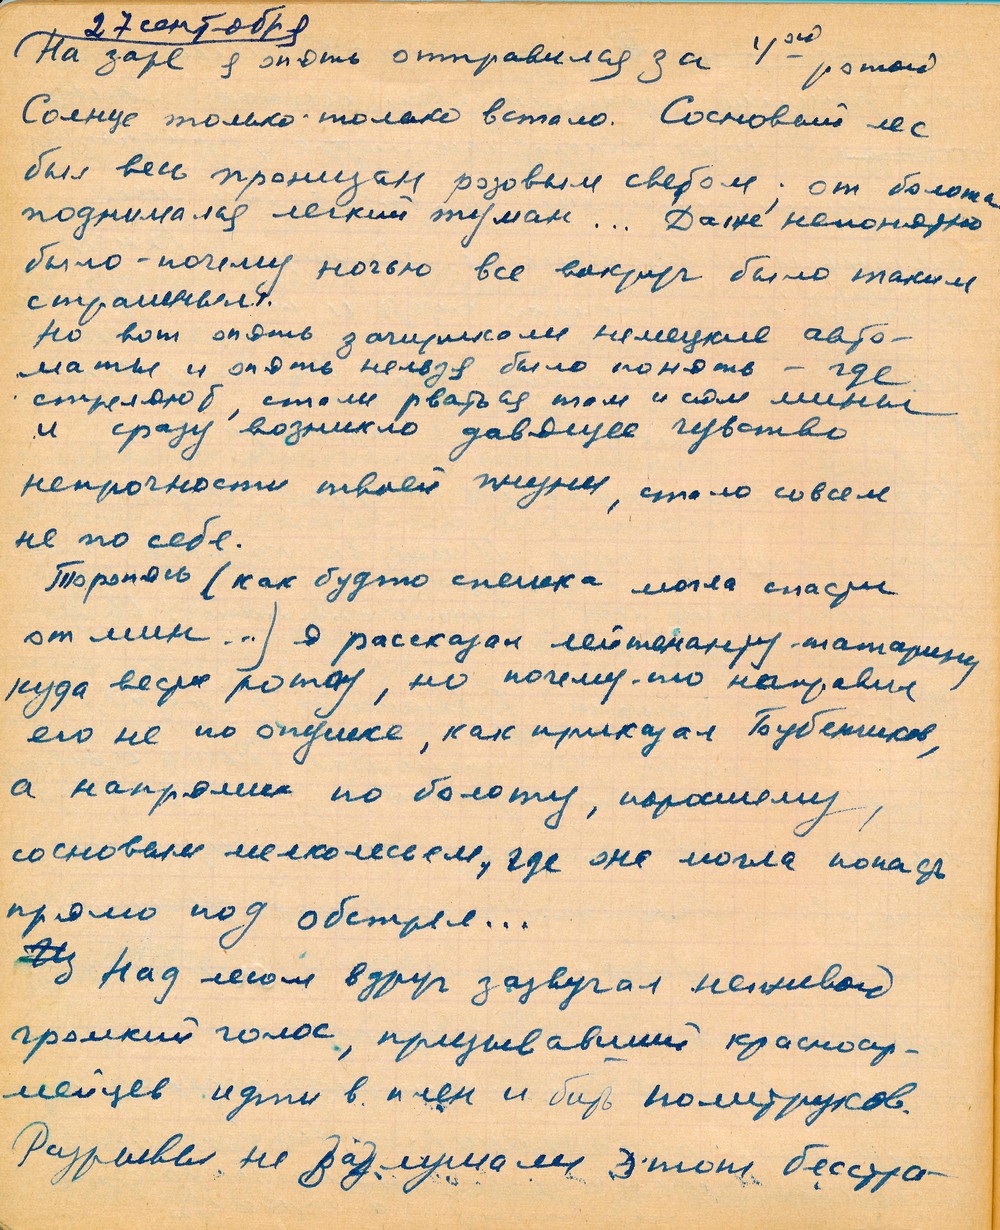 27 сентября
На заре я опять отправился за 4ой ротой
Солнце только-только встало. Сосновый лес
был весь пронизан розовым светом, от болота
поднимался легкий туман... Даже непонятно
было - почему ночью все вокруг было таким
страшным.
Но вот опять зачирикали немецкие авто-
маты и опять нельзя было понять - где
стреляют, стали рваться там и сям мины
и сразу возникло давящее чувство
непрочности твоей жизни, стало совсем
не по себе.
Торопясь (как будто спешка могла спасти
от мин...) я рассказал лейтенанту-татарину
куда вести роту, но почему-то направил
его не по опушке, как приказал Бубенчиков,
а напрямик по болоту, поросшему,
сосновым мелколесьем, где она могла попасть
прямо под обстрел...
Из Над лесом вдруг зазвучал неживой
громкий голос, призывавший красноар-
мейцев идти в плен и бить политруков.
Разрывы не заглушали этот бесстра-